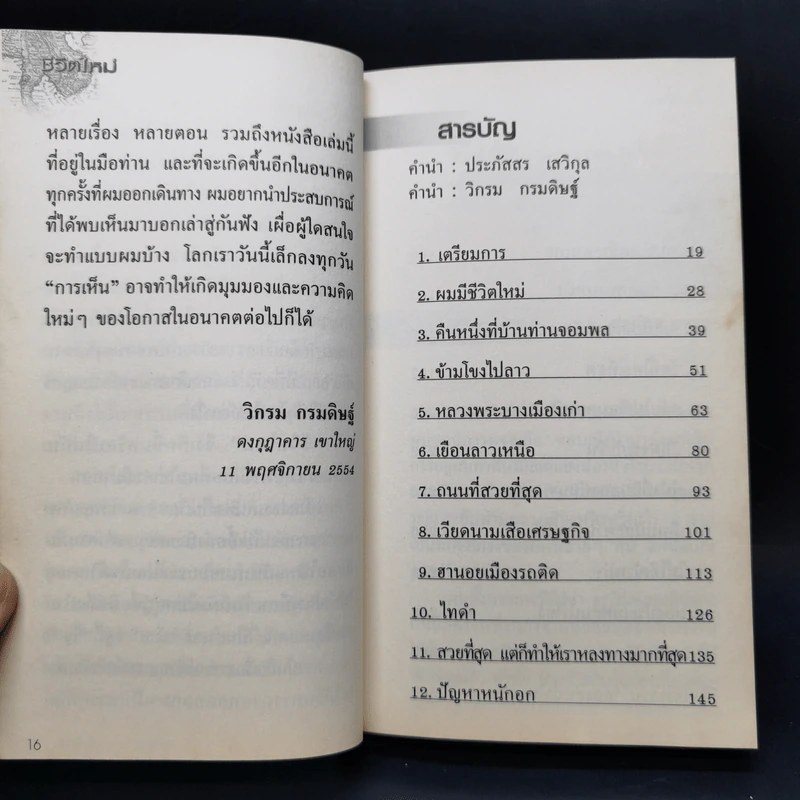 ชีวิตใหม่
หลายเรื่อง หลายตอน รวมถึงหนังสือเล่มนี้
ที่อยู่ในมือท่าน และที่จะเกิดขึ้นอีกในอนาคต
ทุกครั้งที่ผมออกเดินทาง ผมอยากนำประสบการณ์
ที่ได้พบเห็นมาบอกเล่าสู่กันฟัง เผื่อผู้ใดสนใจ
จะทำแบบผมบ้าง โลกเราวันนี้เล็กลงทุกวัน
“การเห็น” อาจทำให้เกิดมุมมองและความคิด
ใหม่ๆ ของโอกาสในอนาคตต่อไปก็ได้
วิกรม กรมดิษฐ์
ดงกุฎาคาร เขาใหญ่
11 พฤศจิกายน 2554
16
สารบัญ
คำนำ : ประภัสสร เสวิกุล
คำนำ : วิกรม กรมดิษฐ์
1. เตรียมการ 19
2. ผมมีชีวิตใหม่ 28
3. คืนหนึ่งที่บ้านท่านจอมพล 39
4. ข้ามโขงไปลาว 51
5. หลวงพระบางเมืองเก่า 63
6. เยือนลาวเหนือ 80
7. ถนนที่สวยที่สุด 93
8. เวียดนามเสือเศรษฐกิจ 101
9. ฮานอยเมืองรถติด 113
10. ไทดำ 126
11. สวยที่สุด แต่ก็ทำให้เราหลงทางมากที่สุด 135
12. ปัญหาหนักอก 145